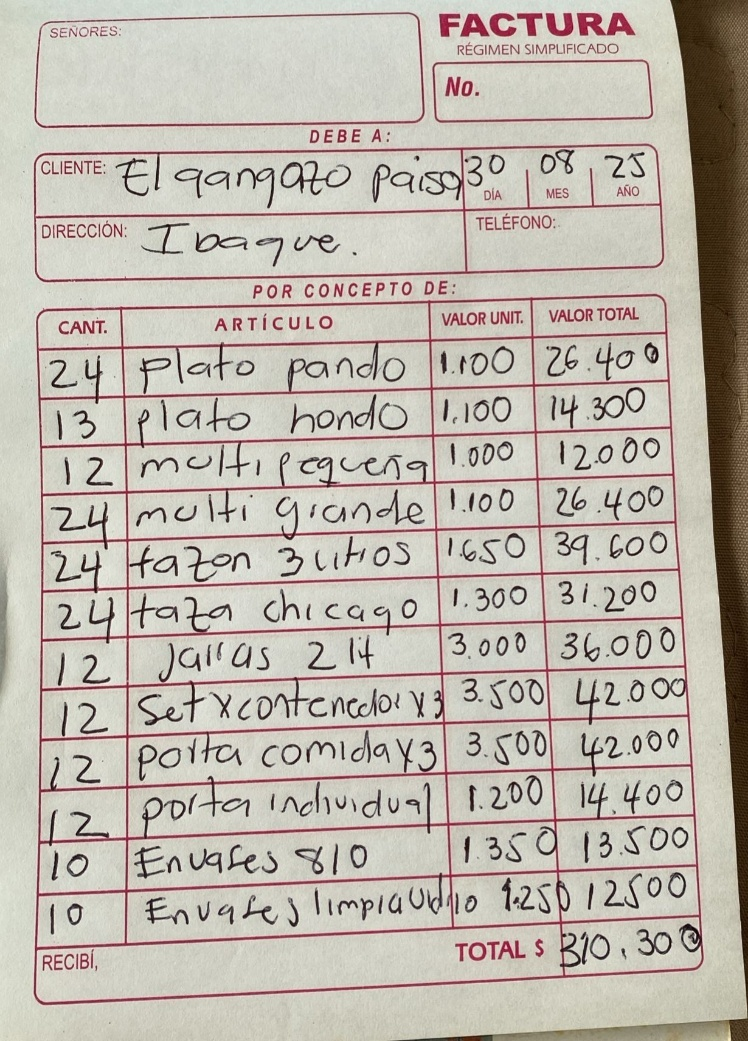 FACTURA
SEÑORES:
RÉGIMEN SIMPLIFICADO
No.
DEBE A:
CLIENTE: El gangazo paisa 30 08 25
DÍA MES AÑO
DIRECCIÓN: Ibague. TELÉFONO:
POR CONCEPTO DE:
CANT. ARTÍCULO VALOR UNIT. VALOR TOTAL
24 plato pando 1.100 26.400
13 plato hondo 1.100 14.300
12 multi pequeña 1.000 12.000
24 multi grande 1.100 26.400
24 tazon 3 litros 1.650 39.600
24 taza chicago 1.300 31.200
12 Jarras 2 lt 3.000 36.000
12 Set x contenedor x3 3.500 42.000
12 porta comida x3 3.500 42.000
12 porta individual 1.200 14.400
10 Envases 810 1.350 13.500
10 Envases limpiavidrio 1.250 12500
RECIBÍ, TOTAL $ 310.300